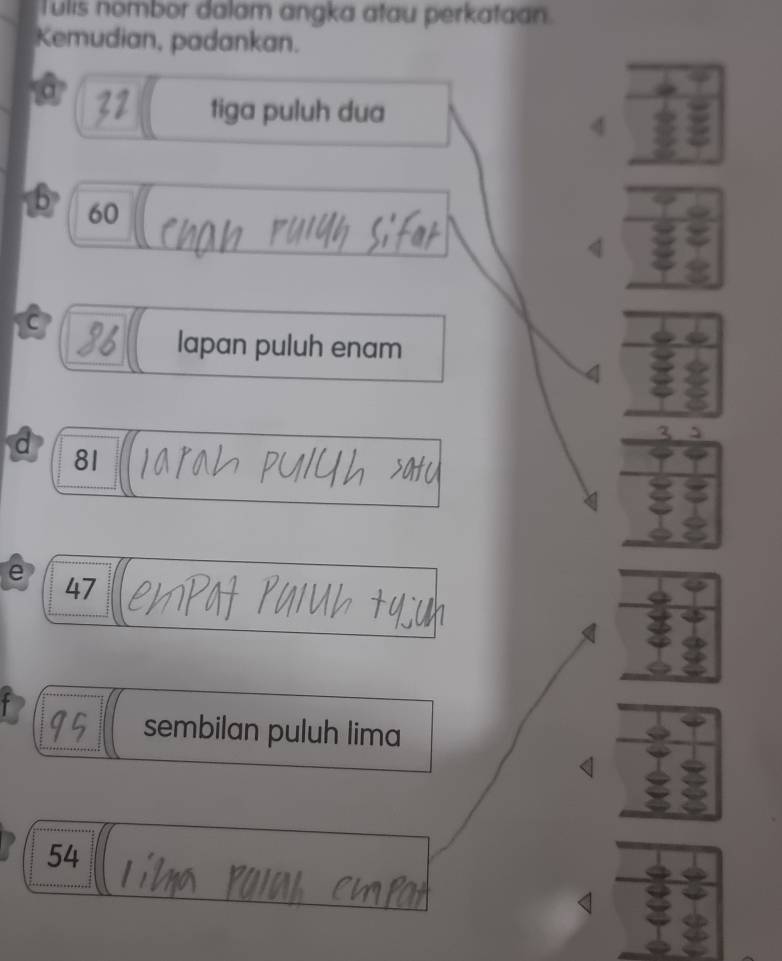 Tulis nombor dalam angka atau perkataan.
Kemudian, padankan.
a 32 tiga puluh dua
b 60 enan puluh sifar
c 86 lapan puluh enam
3 2
d 81 lapan puluh satu
e 47 empat puluh tujuh
f 95 sembilan puluh lima
54 lima puluh empat